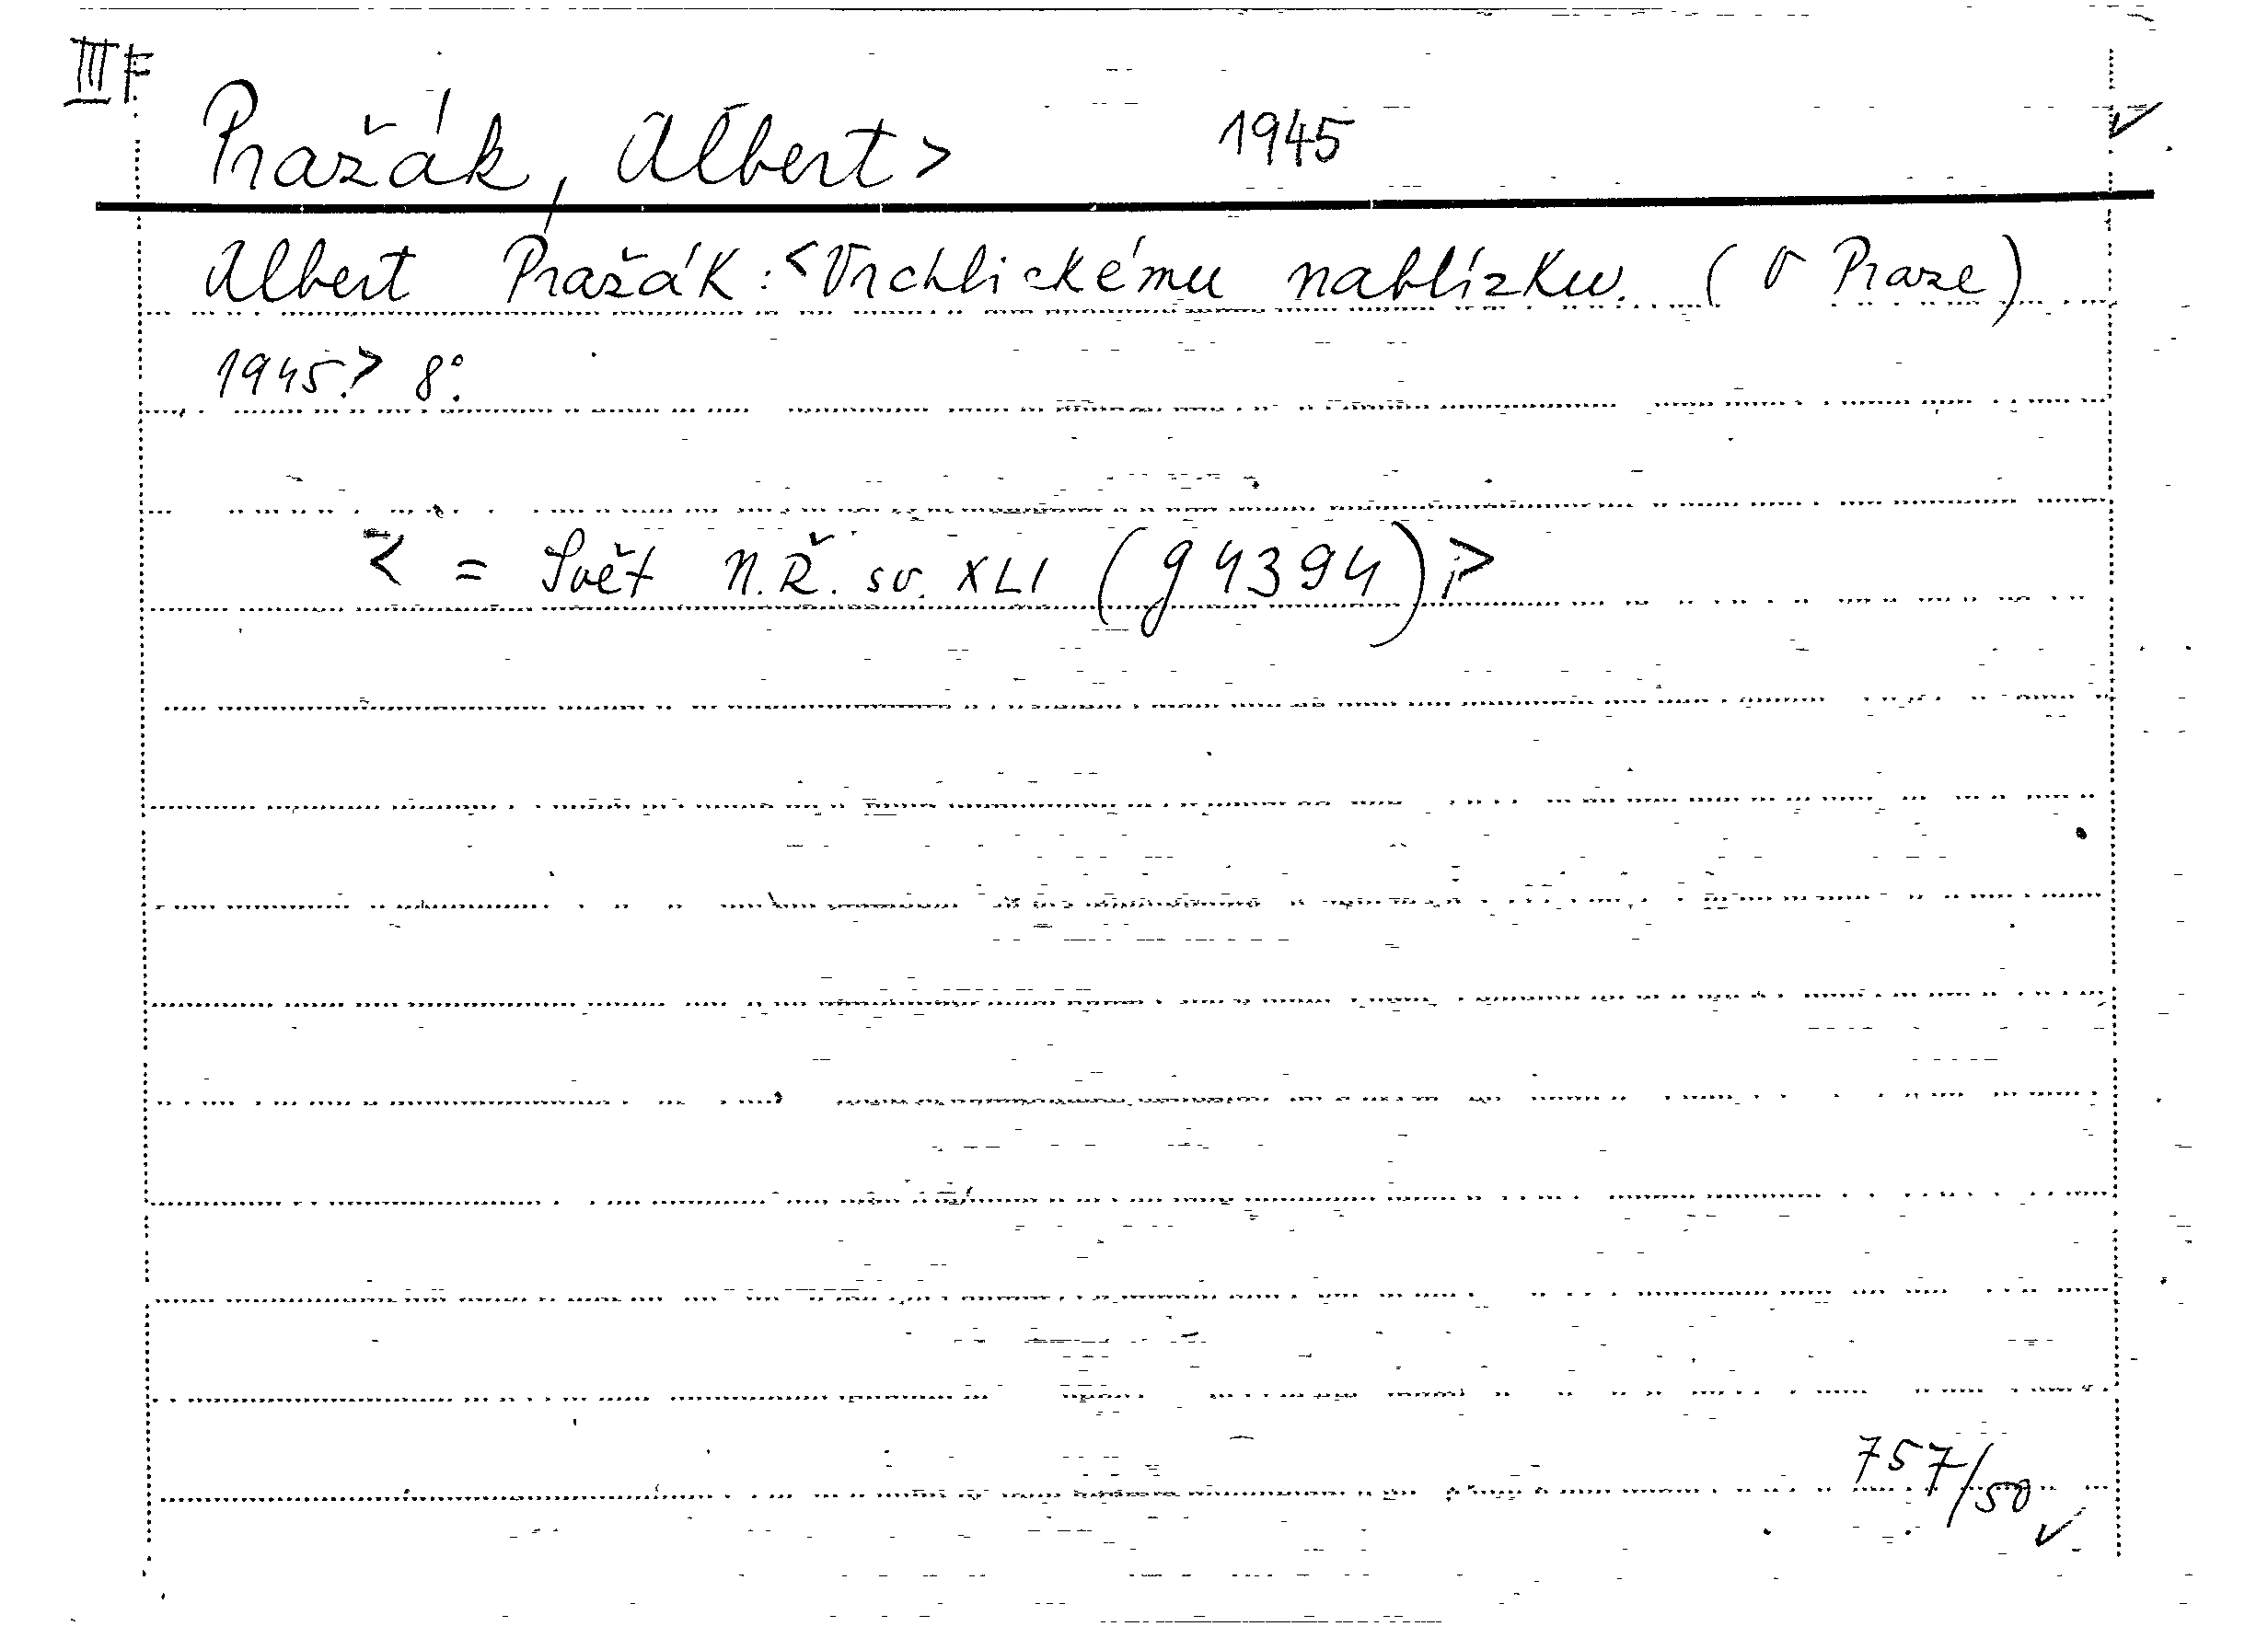 III F
Pražák, Albert> 1945 ✓
Albert Pražák: <Vrchlickému nablízku. (V Praze)
1945.> 8°.
< = Svět N.Ř. sv. XLI (g 4394)>
757/50 ✓